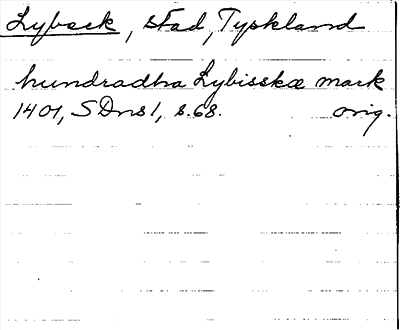 Lybeck, stad, Tyskland
hundradha Lybisskæ mark
1401, SDns1, s.68. orig.